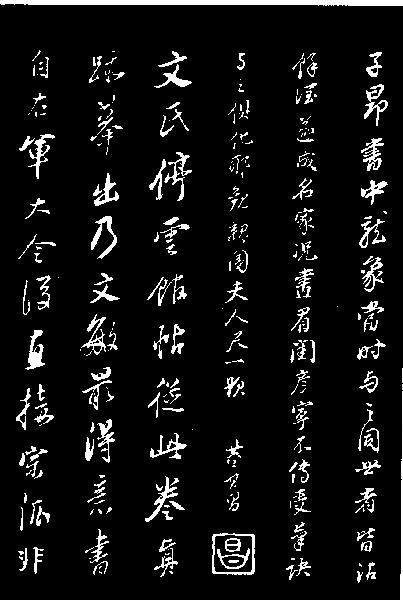 子昂書中龍象當时与之同世者皆沾
餘瀝並成名家況畫眉閨彥寧不傳受筆訣
与之俱化耶觀魏國夫人尺一題 董其昌
昌
文氏停雲館帖從此卷真
跡摹出乃文敏最得意書
自右軍大令後直接宗派非